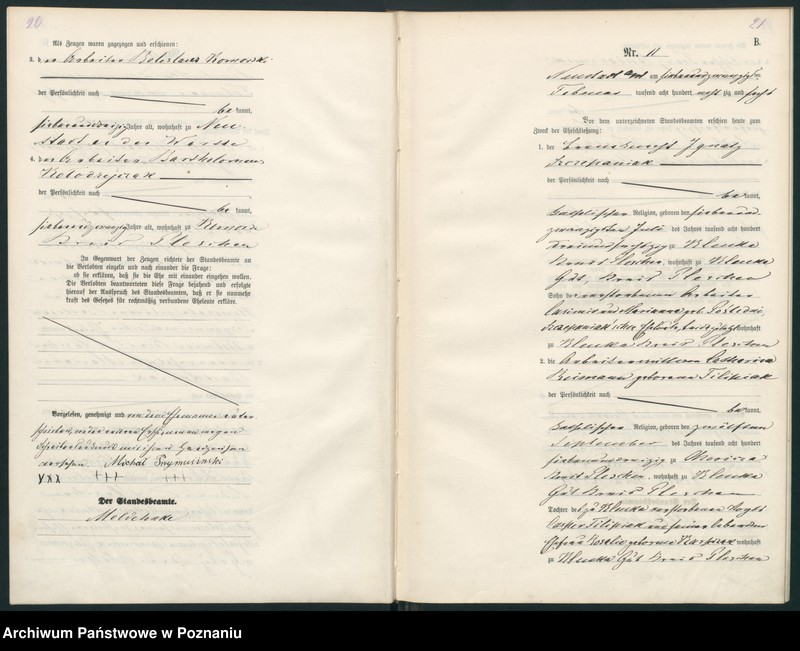 20
Als Zeugen waren zugezogen und erschienen:
3. der Arbeiter Boleslaus Komorski
der Persönlichkeit nach
bekannt,
siebenunddreißig Jahre alt, wohnhaft zu Neu-
stadt an der Warthe
4. der Arbeiter Bartholomaeus
Kolodziejczak
der Persönlichkeit nach
bekannt,
siebenundzwanzig Jahre alt, wohnhaft zu
Kreis Pleschen
In Gegenwart der Zeugen richtete der Standesbeamte an
die Verlobten einzeln und nach einander die Frage:
ob sie erklären, daß sie die Ehe mit einander eingehen wollen.
Die Verlobten beantworteten diese Frage bejahend und erfolgte
hierauf der Ausspruch des Standesbeamten, daß er sie nunmehr
kraft des Gesetzes für rechtmäßig verbundene Eheleute erkläre.
Vorgelesen, genehmigt und von dem Ehemanne unter-
schrieben, von der Ehefrau wegen
Schreibensunkunde mit ihren Handzeichen
versehen. Michal Przymusinski
xxx +++ +++
Der Standesbeamte.
21
B.
Nr. 11
Neustadt a/W am siebenundzwanzigsten
Februar tausend acht hundert achtzig und sechs
Vor dem unterzeichneten Standesbeamten erschien heute zum
Zweck der Eheschließung:
1. der Ignatz
Szczepaniak
der Persönlichkeit nach
bekannt,
katholischer Religion, geboren den siebenund-
zwanzigsten Juli des Jahres tausend acht hundert
dreiundsechzig zu Klenka
Kreis Pleschen, wohnhaft zu Klenka
Gut, Kreis Pleschen
Sohn der verstorbenen Arbeiter
Casimir und Marianna geb.
Szczepaniak'schen Eheleute, zuletzt wohnhaft
zu Klenka Kreis Pleschen
2. die Arbeiterwittwe Catharina
geborene Filipiak
der Persönlichkeit nach
bekannt,
katholischer Religion, geboren den zwölften
September des Jahres tausend acht hundert
siebenundvierzig zu
Kreis Pleschen, wohnhaft zu Klenka
Gut Kreis Pleschen
Tochter des zu Klenka verstorbenen Vogts
Casper Filipiak und seiner lebenden
Ehefrau Rosalie geborene wohnhaft
zu Klenka Gut Kreis Pleschen
Archiwum Państwowe w Poznaniu